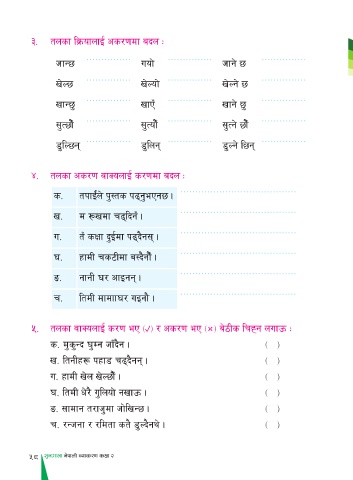 ३. तलका क्रियालाई अकरणमा बदल :
जान्छ .................. गयो .................. जाने छ ..................
खेल्छ .................. खेल्यो .................. खेल्ने छ ..................
खान्छु .................. खाएँ .................. खाने छु ..................
सुत्छौँ .................. सुत्यौँ .................. सुत्ने छौँ ..................
डुल्छिन् .................. डुलिन् .................. डुल्ने छिन् ..................
४. तलका अकरण वाक्यलाई करणमा बदल :
क. तपाईंले पुस्तक पढ्नुभएनछ ।
ख. म रूखमा चढ्दिनँ ।
ग. तँ कक्षा दुईमा पढ्दैनस् ।
घ. हामी चकटीमा बस्दैनौँ ।
ङ. नानी घर आइनन् ।
च. तिमी मामाघर गइनौ ।
५. तलका वाक्यलाई करण भए (✓) र अकरण भए (×) बेठीक चिह्न लगाऊ :
क. मुकुन्द घुम्न जाँदैन । ( )
ख. तिनीहरू पहाड चढ्दैनन् । ( )
ग. हामी खेल खेल्छौँ । ( )
घ. तिमी धेरै गुलियो नखाऊ । ( )
ङ. सामान तराजुमा जोखिन्छ । ( )
च. रन्जना र रमिता कतै डुल्दैनथे । ( )
५८ नेपाली व्याकरण कक्षा २